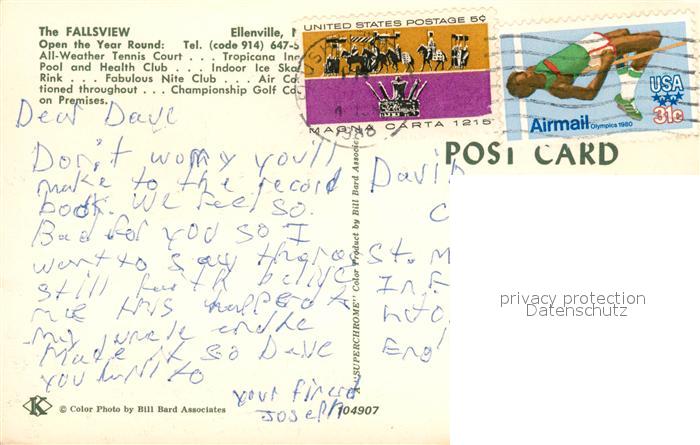 The FALLSVIEW Ellenville, N
Open the Year Round: Tel. (code 914) 647-5
All-Weather Tennis Court . . . Tropicana Ind
Pool and Health Club . . . Indoor Ice Ska
Rink . . . Fabulous Nite Club . . . Air Co
tioned throughout . . . Championship Golf Co
on Premises.
UNITED STATES POSTAGE 5¢
MAGNA CARTA 1215
USA
31c
Airmail Olympics 1980
POST CARD
Dear Dave
Don't worry you'll
make to the record
book. We feel so
Bad for you so I
want to say
still
me this happen
my uncle
Made it so Dave
you will to
your friend
Joseph
David
C
St. M
In F
Engl
privacy protection
Datenschutz
"SUPERCHROME" Color Product by Bill Bard Associates
K © Color Photo by Bill Bard Associates
104907